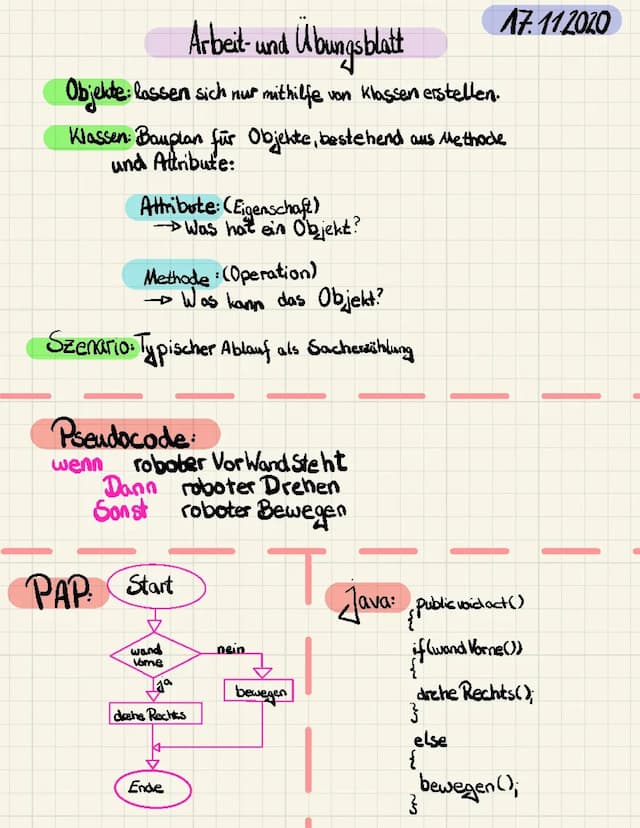 17.11.2020
Arbeit- und Übungsblatt
Objekte: lassen sich nur mithilfe von Klassen erstellen.
Klassen: Bauplan für Objekte, bestehend aus Methode
und Attribute:
Attribute: (Eigenschaft)
→ Was hat ein Objekt?
Methode: (Operation)
→ Was kann das Objekt?
Szenario: Typischer Ablauf als Sacherzählung
Pseudocode:
wenn roboter VorWand Steht
Dann roboter Drehen
Sonst roboter Bewegen
PAP:
Start
wand vorne
nein
ja
bewegen
drehe Rechts
Ende
Java:
public void act()
{
if(wand Vorne())
{
drehe Rechts();
}
else
{
bewegen();
}